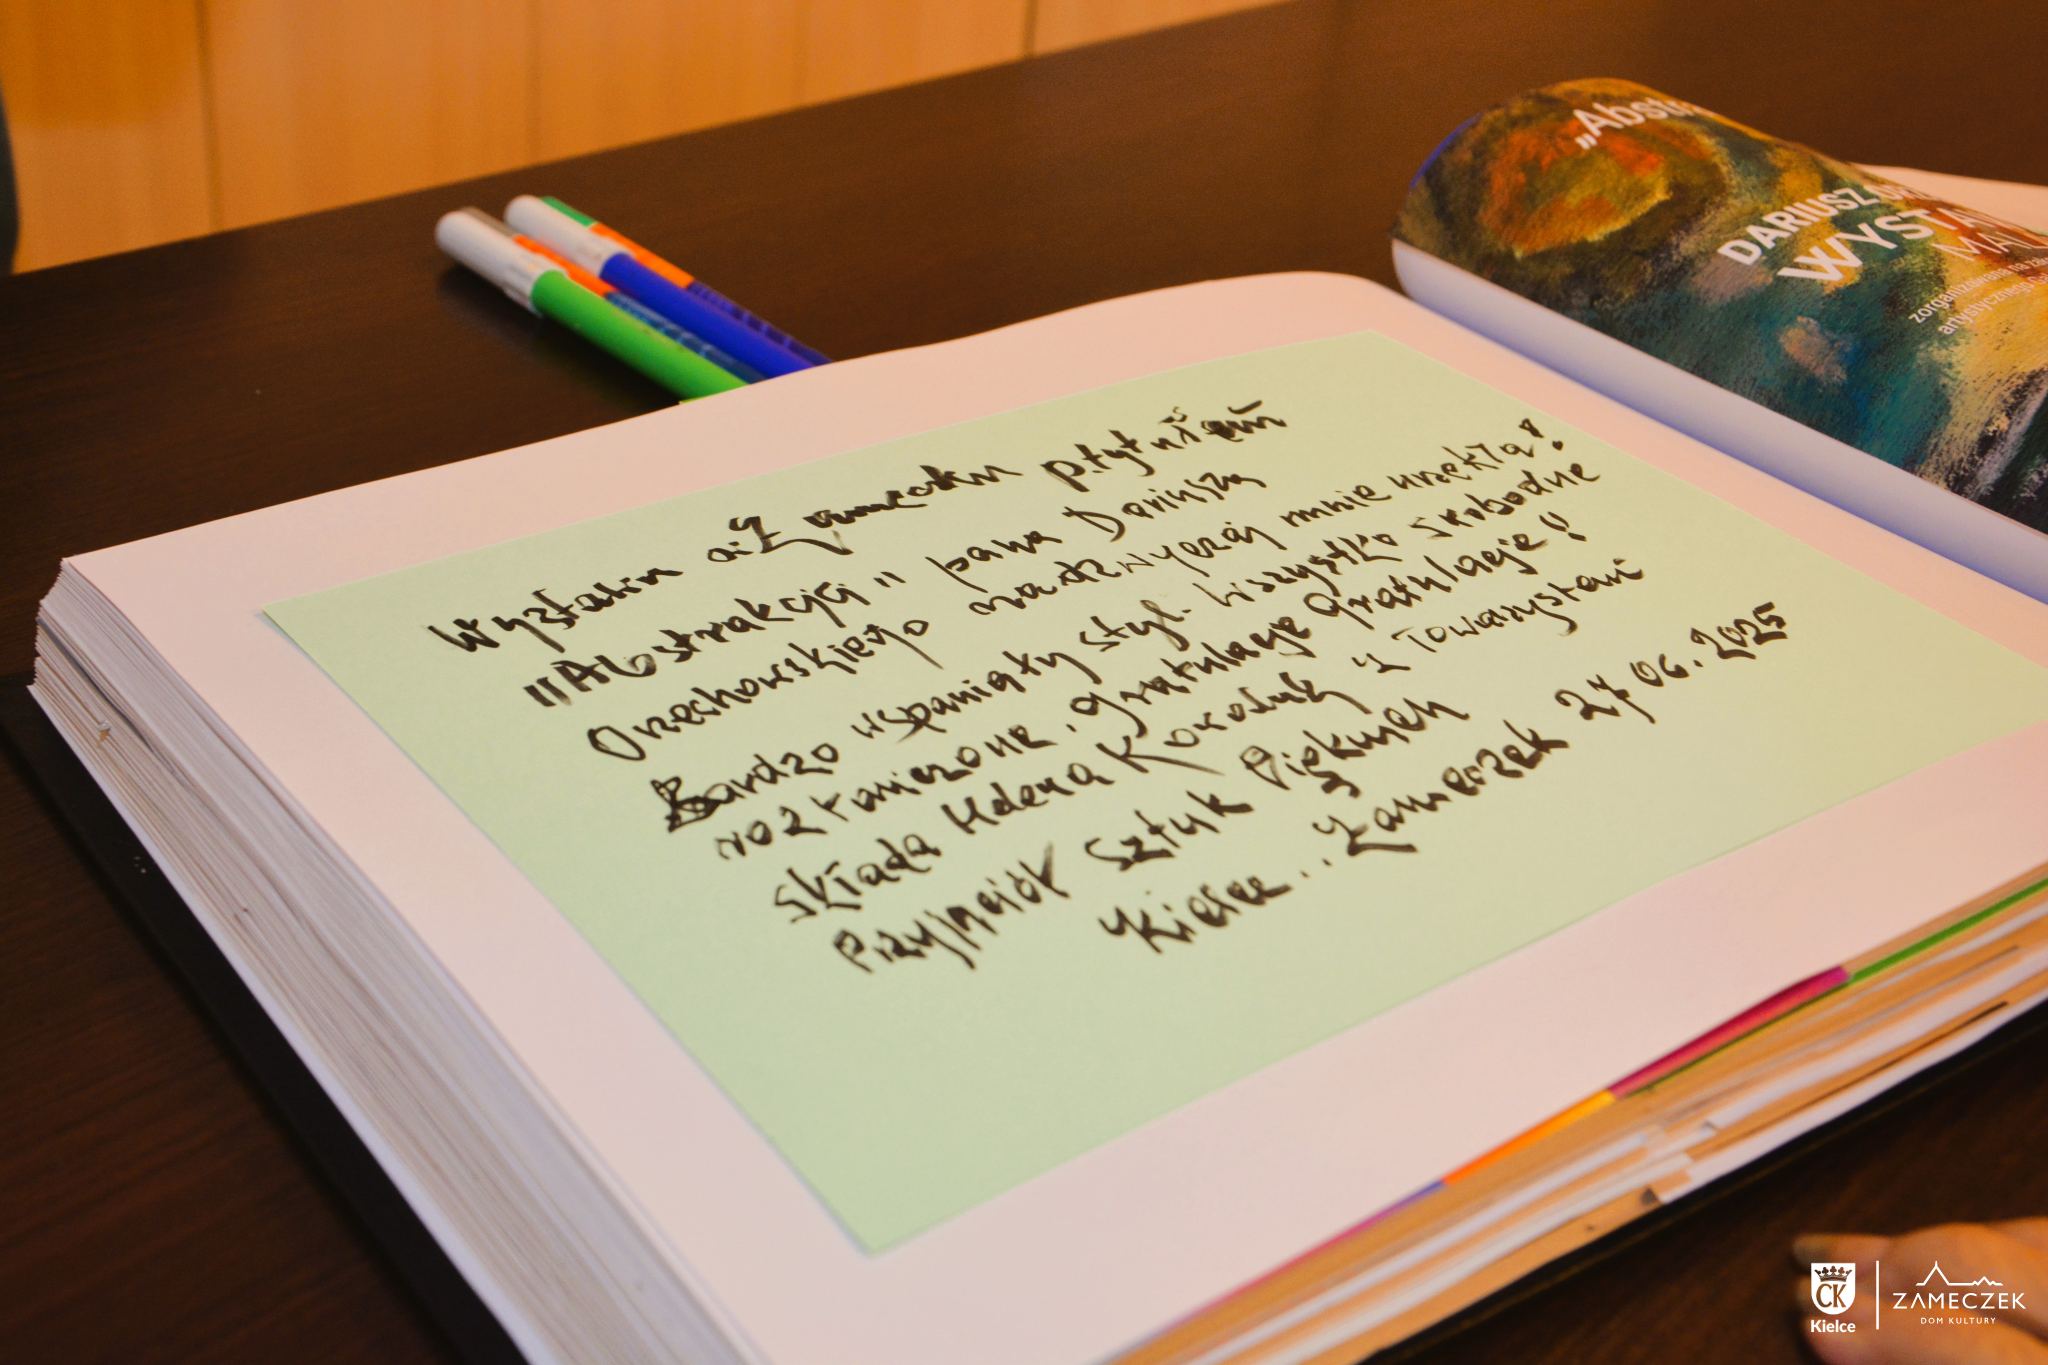 Wystawa
"Abstrakcja" pana Dariusza
Orzechowskiego nadzwyczaj mnie urzekła!
Bardzo wspaniały styl. Wszystko swobodne
rozłoniczone. Gratuluję Gratulacje!
składa Helena z Towarzystwa
Przyjaciół Sztuk Pięknych
Kielce.. Zameczek 27.06.2025
„Abst
DARIUSZ
WYSTA
MAL
zorganizowana na
artystycznego
CK
Kielce
ZAMECZEK
DOM KULTURY